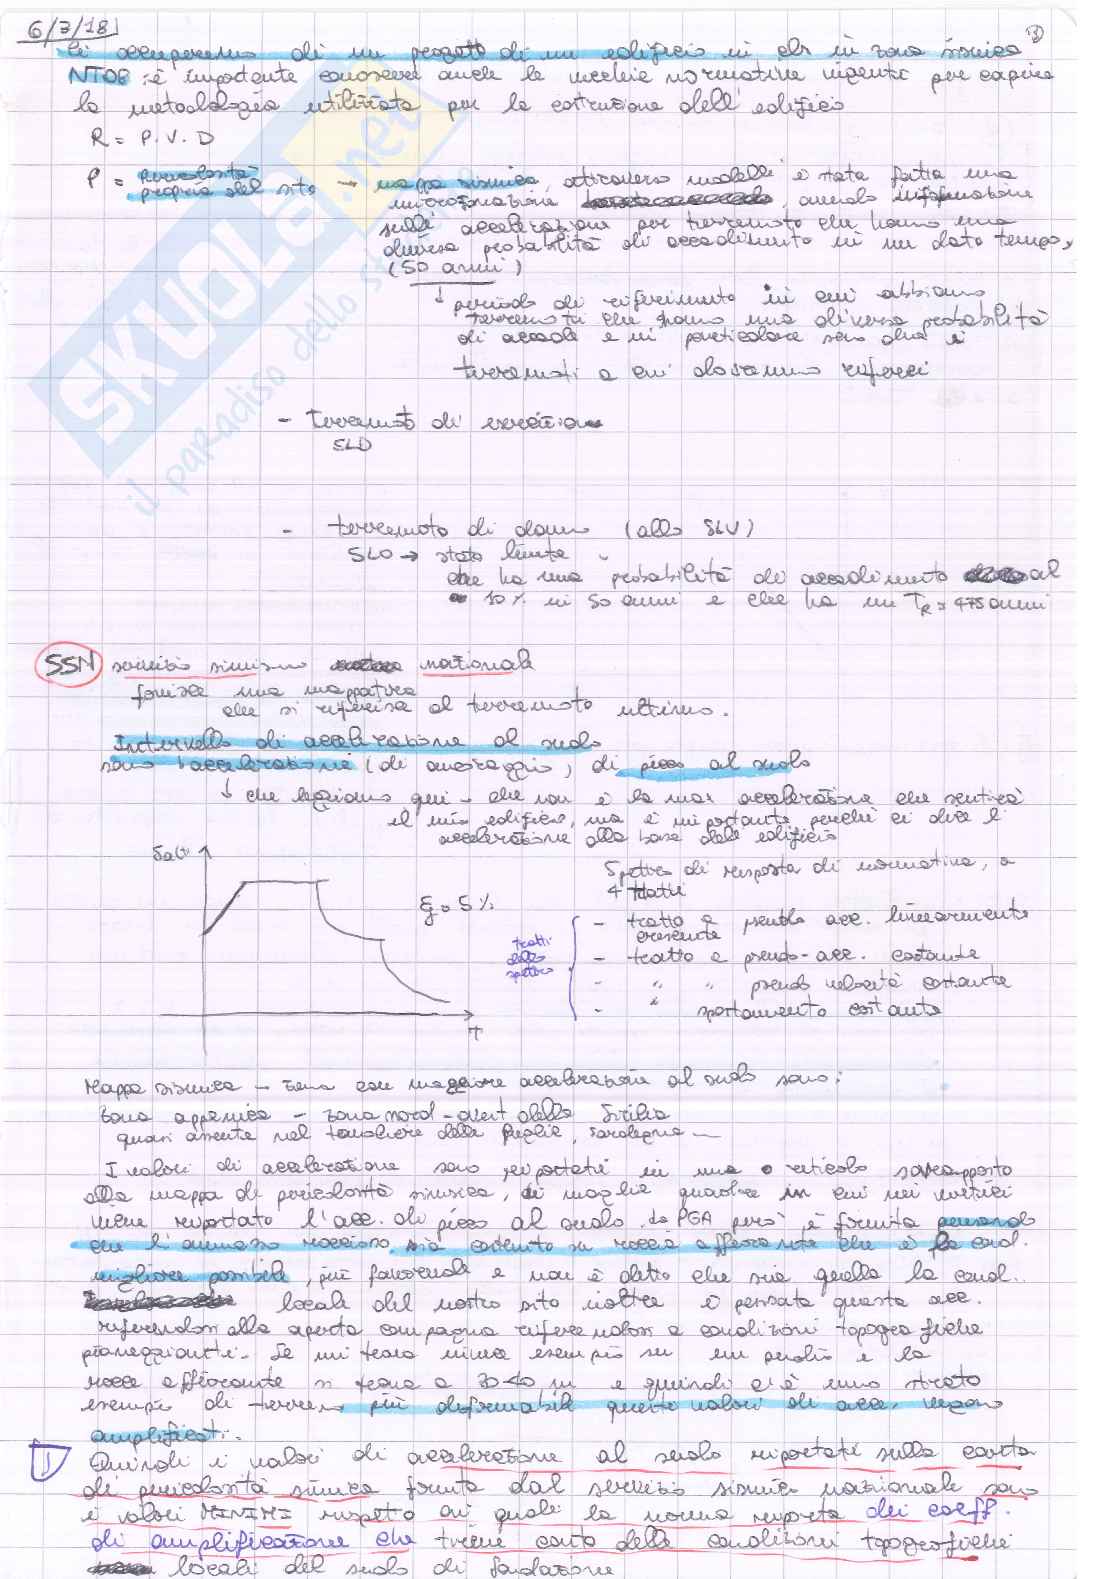 6/3/18
Ci occuperemo di un progetto di un edificio in cls in zona sismica
NTC08 : è importante conoscere anche le vecchie normative vigenti per capire
la metodologia utilizzata per la costruzione dell'edificio
R = P. V. D
P = pericolosità
propria del sito → mappa sismica, attraverso modelli è stata fatta una
microzonazione, avendo informazione
sulle accelerazioni per terremoto che hanno una
diversa probabilità di accadimento in un dato tempo,
(50 anni)
↓ periodo di riferimento in cui abbiamo
terremoti che hanno una diversa probabilità
di accade e in particolare sono due i
terremoti a cui dobbiamo riferirci
- Terremoto di esercizio
SLD
- terremoto di danno (allo SLV)
SLO → stato limite
che ha una probabilità di accadimento al
10% in 50 anni e che ha un TR = 475 anni
SSN servizio sismico nazionale
fornisce una mappatura
che si riferisce al terremoto ultimo.
Intervallo di accelerazione al suolo
sono accelerazioni (di ancoraggio) di picco al suolo
↓ che leggiamo qui - che non è la max accelerazione che sentirà
il mio edificio, ma è importante perché ci dice l'
accelerazione alla base dell'edificio
Sa(T)
ξ = 5%
T
Spettro di risposta di normativa, a
4 tratti
tratti
dello
spettro
- tratto a pseudo acc. linearmente
crescente
- tratto a pseudo-acc. costante
- " " pseudo velocità costante
- " spostamento costante
Mappa sismica - zona con maggiore accelerazione al suolo sono:
zona appennica - zona nord-ovest della Sicilia
quasi assente nel tavoliere delle Puglie, Sardegna -
I valori di accelerazione sono riportati in una reticolo sovrapposto
alla mappa di pericolosità sismica, di maglie quadre in cui nei vertici
viene riportato l'acc. di picco al suolo. La PGA però è fornita pensando
che l'ammasso roccioso sia costruito su roccia affiorante che è la cond.
migliore possibile, più favorevole e non è detto che sia quella la cond.
locale del nostro sito inoltre è pensata questa acc.
riferendosi alla aperta campagna riferendosi a condizioni topografiche
pianeggianti. Se mi trovo invece esempio su un pendio e la
rocca affiorante si trova a 30-40 m e quindi c'è uno strato
esempio di terreno più deformabile questi valori di acc. vengono
amplificati.
Quindi i valori di accelerazione al suolo riportati sulla carta
di pericolosità sismica fornita dal servizio sismico nazionale sono
i valori MINIMI rispetto ai quali la norma riporta dei coeff.
di amplificazione che tiene conto delle condizioni topografiche
locali del suolo di fondazione
SKUOLA.net
il paradiso dello s